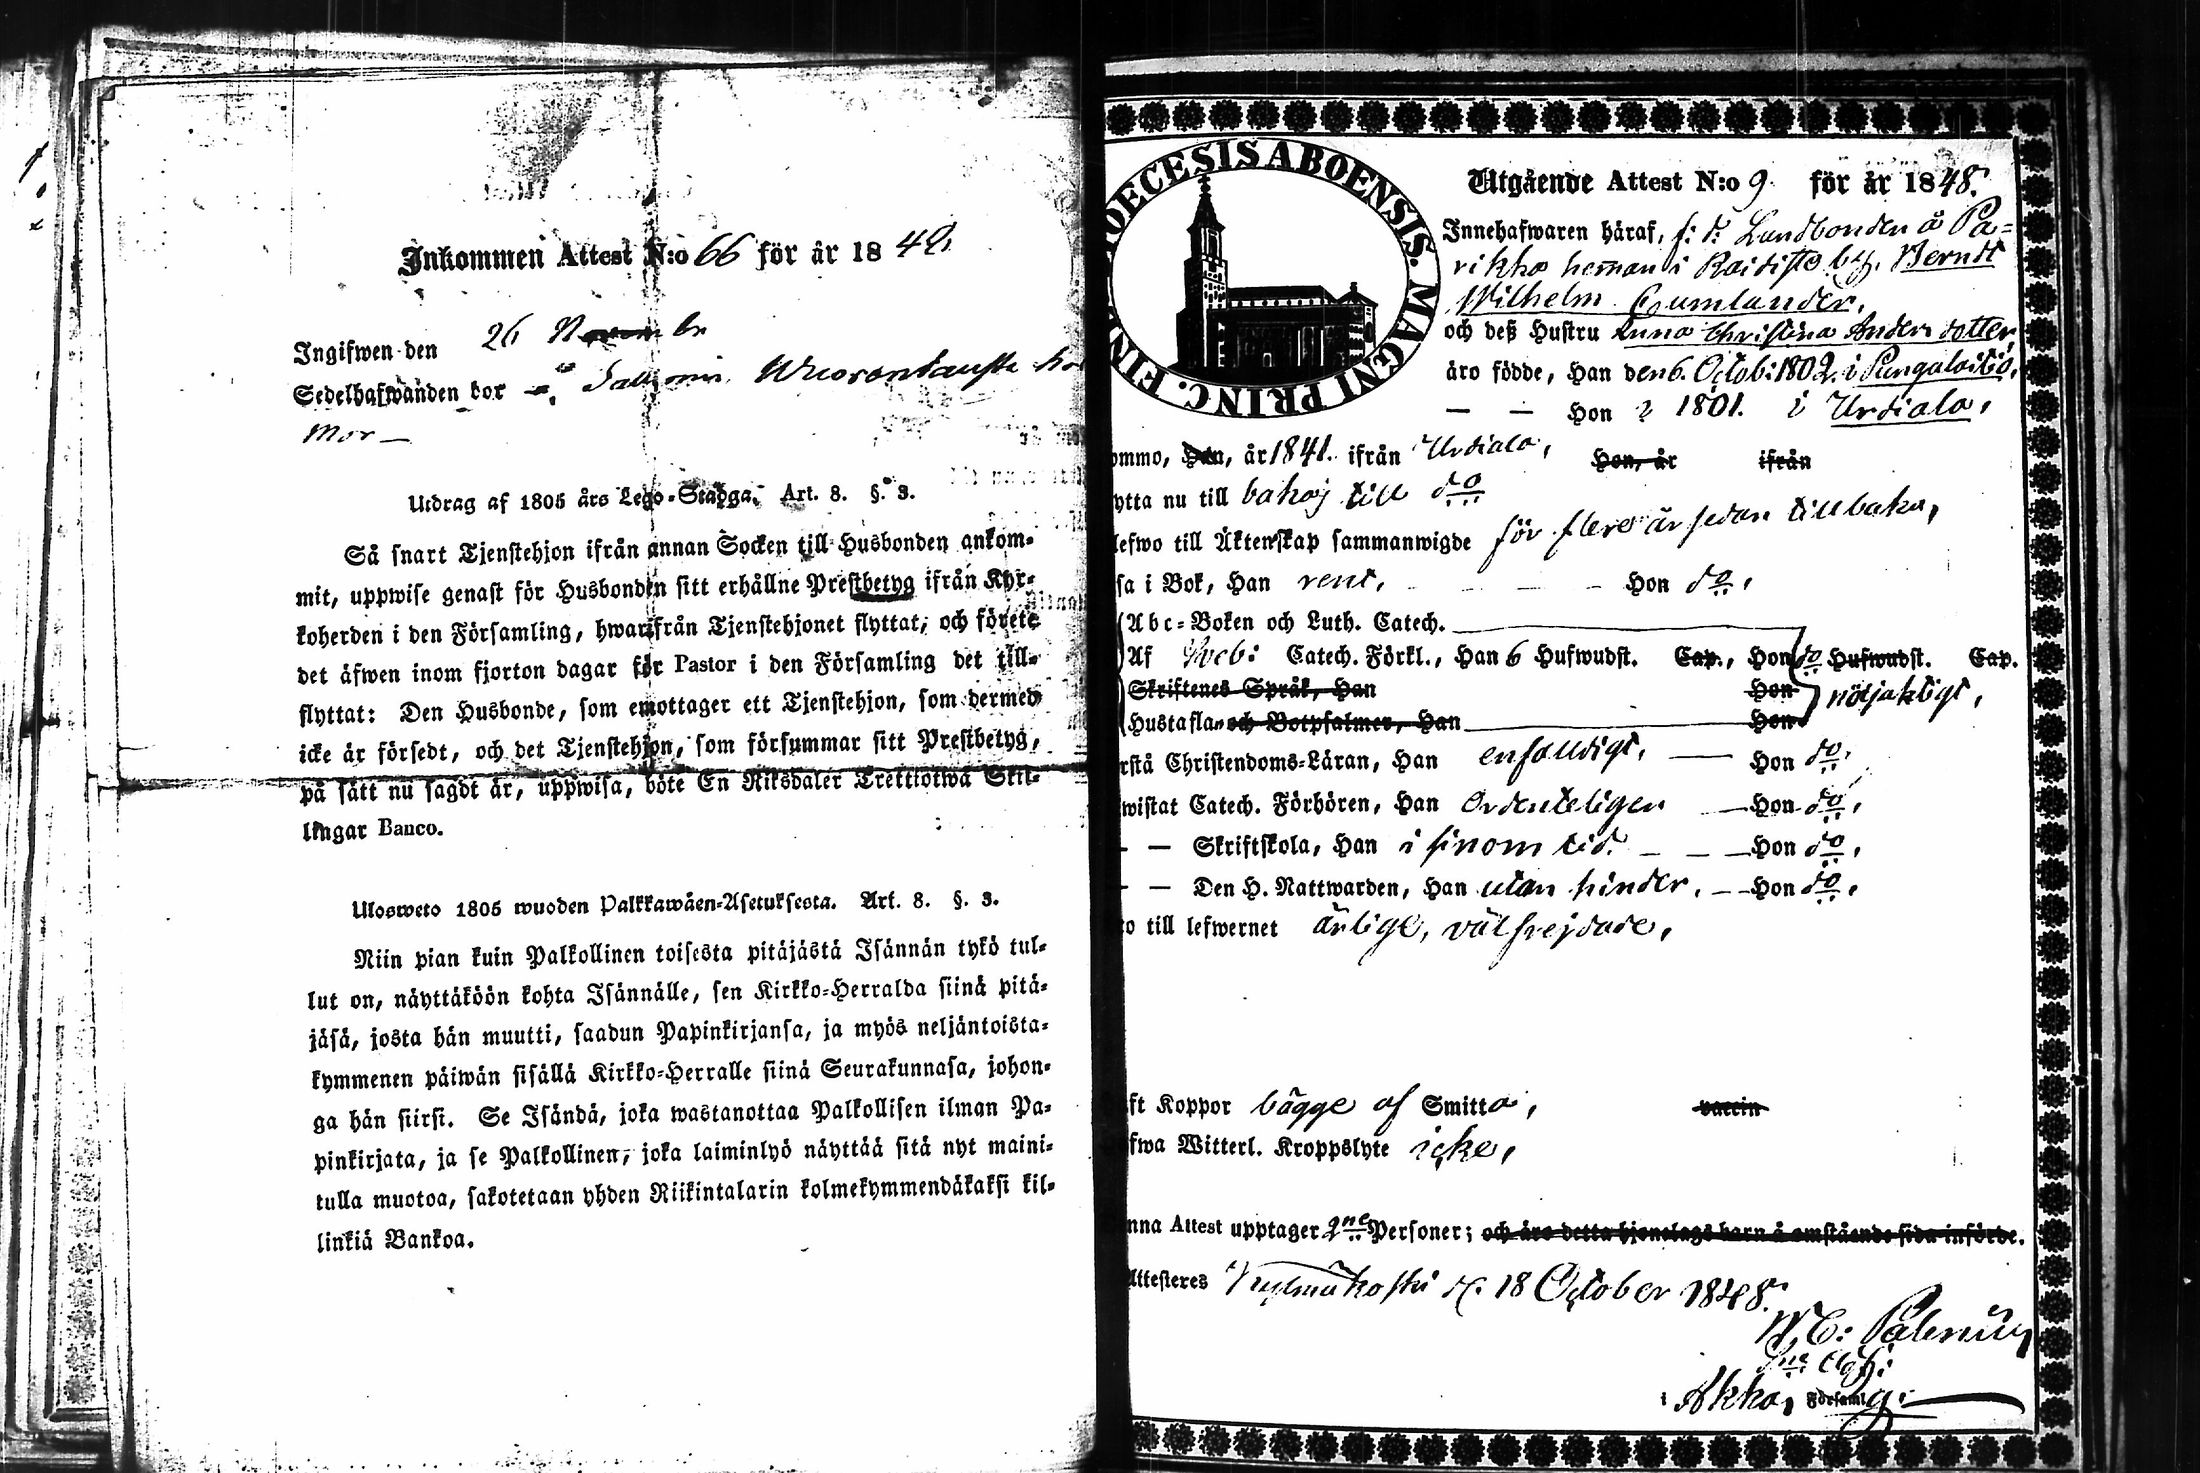 Inkommen Attest N:o 66 för år 1848.
Ingifwen den 26 Novembr
Sedelhafwanden bor
Mor
Utdrag af 1805 års Lego-Stadga. Art. 8. §. 3.
Så snart Tjenstehjon ifrån annan Socken till Husbonden ankom-
mit, uppwise genast för Husbonden sitt erhållne Prestbetyg ifrån Kyr-
koherden i den Församling, hwarifrån Tjenstehjonet flyttat, och förete
det äfwen inom fjorton dagar för Pastor i den Församling det till-
flyttat: Den Husbonde, som emottager ett Tjenstehjon, som dermed
icke är försedt, och det Tjenstehjon, som försummar sitt Prestbetyg,
på sätt nu sagdt är, uppwisa, böte En Riksdaler Trettiotwå Skil-
lingar Banco.
Ulosweto 1805 wuoden Palkkawäen-Asetuksesta. Art. 8. §. 3.
Niin pian kuin Palkollinen toisesta pitäjästä Isännän tykö tul-
lut on, näyttäköön kohta Isännälle, sen Kirkko-Herralda siinä pitä-
jäsä, josta hän muutti, saadun Papinkirjansa, ja myös neljäntoista-
kymmenen päiwän sisällä Kirkko-Herralle siinä Seurakunnasa, johon-
ga hän siirsi. Se Isändä, joka wastanottaa Palkollisen ilman Pa-
pinkirjata, ja se Palkollinen, joka laiminlyö näyttää sitä nyt maini-
tulla muotoa, sakotetaan yhden Riikintalarin kolmekymmendäkaksi kil-
linkiä Bankoa.
DIOECESIS ABOENSIS. MAGNI PRINC. FIN
Utgående Attest N:o 9 för år 1848.
Innehafwaren häraf, f: d: Landbonden å Pa-
rikko heman i Raidisto by, Berndt
Wilhelm Gumlander,
och deß Hustru Anna Christina Anders dotter,
äro födde, Han den 6. Octob: 1802. i Pungalaitio,
— — Hon ? 1801. i Urdiala,
ommo, Han, år 1841. ifrån Urdiala, Hon, år ifrån
ytta nu till bakaj till do
lefwo till Äktenskap sammanwigde för flere år sedan tillbaka,
sa i Bok, Han rent, — — — Hon do,
Abc-Boken och Luth. Catech.
Af Sveb: Catech. Förkl., Han 6 Hufwudst. Cap., Hon do Hufwudst. Cap.
Skriftenes Språk, Han Hon nöijaktigt,
Hustaflan och Botpsalmer, Han Hon
rstå Christendoms-Läran, Han enfalldigt, — Hon do,
wistat Catech. Förhören, Han Ordenteligen — Hon do,
— — Skriftskola, Han i sinom tid. — — Hon do,
— — Den H. Nattwarden, Han utan hinder, — Hon do,
ro till lefwernet ärlige, välfrejdade,
ft Koppor bägge af Smitta, vaccin
fwa Witterl. Kroppslyte icke,
nna Attest upptager 2ne Personer; och äro detta hjonelags barn å omstående sida införde.
Attesteres Kylmäkoski d. 18 October 1848.
i Akka, Församlg: